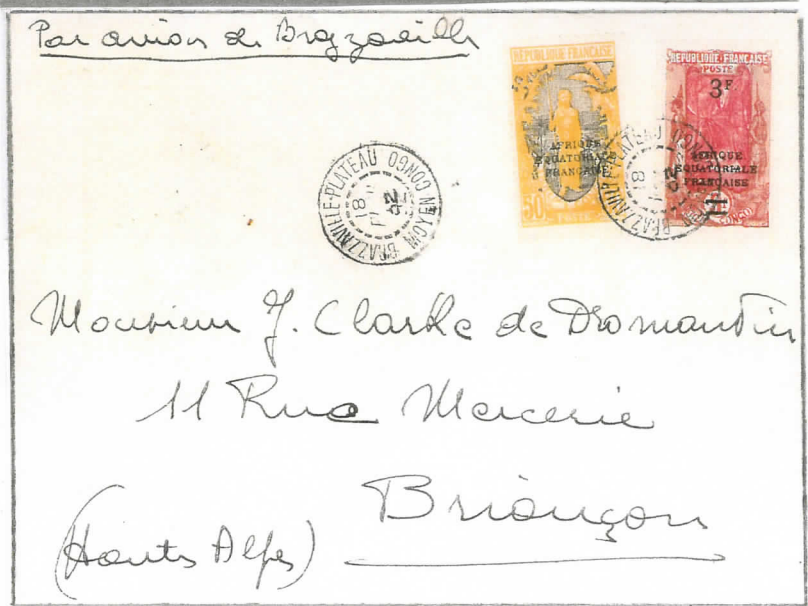 Par avion de Brazzaville
RÉPUBLIQUE FRANÇAISE
AFRIQUE
EQUATORIALE
FRANÇAISE
50c
POSTE
RÉPUBLIQUE FRANÇAISE
POSTE
3F
AFRIQUE
EQUATORIALE
FRANÇAISE
BRAZZAVILLE-PLATEAU MOYEN CONGO
18
BRAZZAVILLE-PLATEAU MOYEN CONGO
18
Monsieur J. Clarke de Dromantin
11 Rue Mercerie
Briançon
(Hautes Alpes)